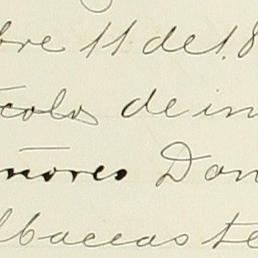 bre 11 de 1.8
ícolos de in
ñores Don
lbaceas te